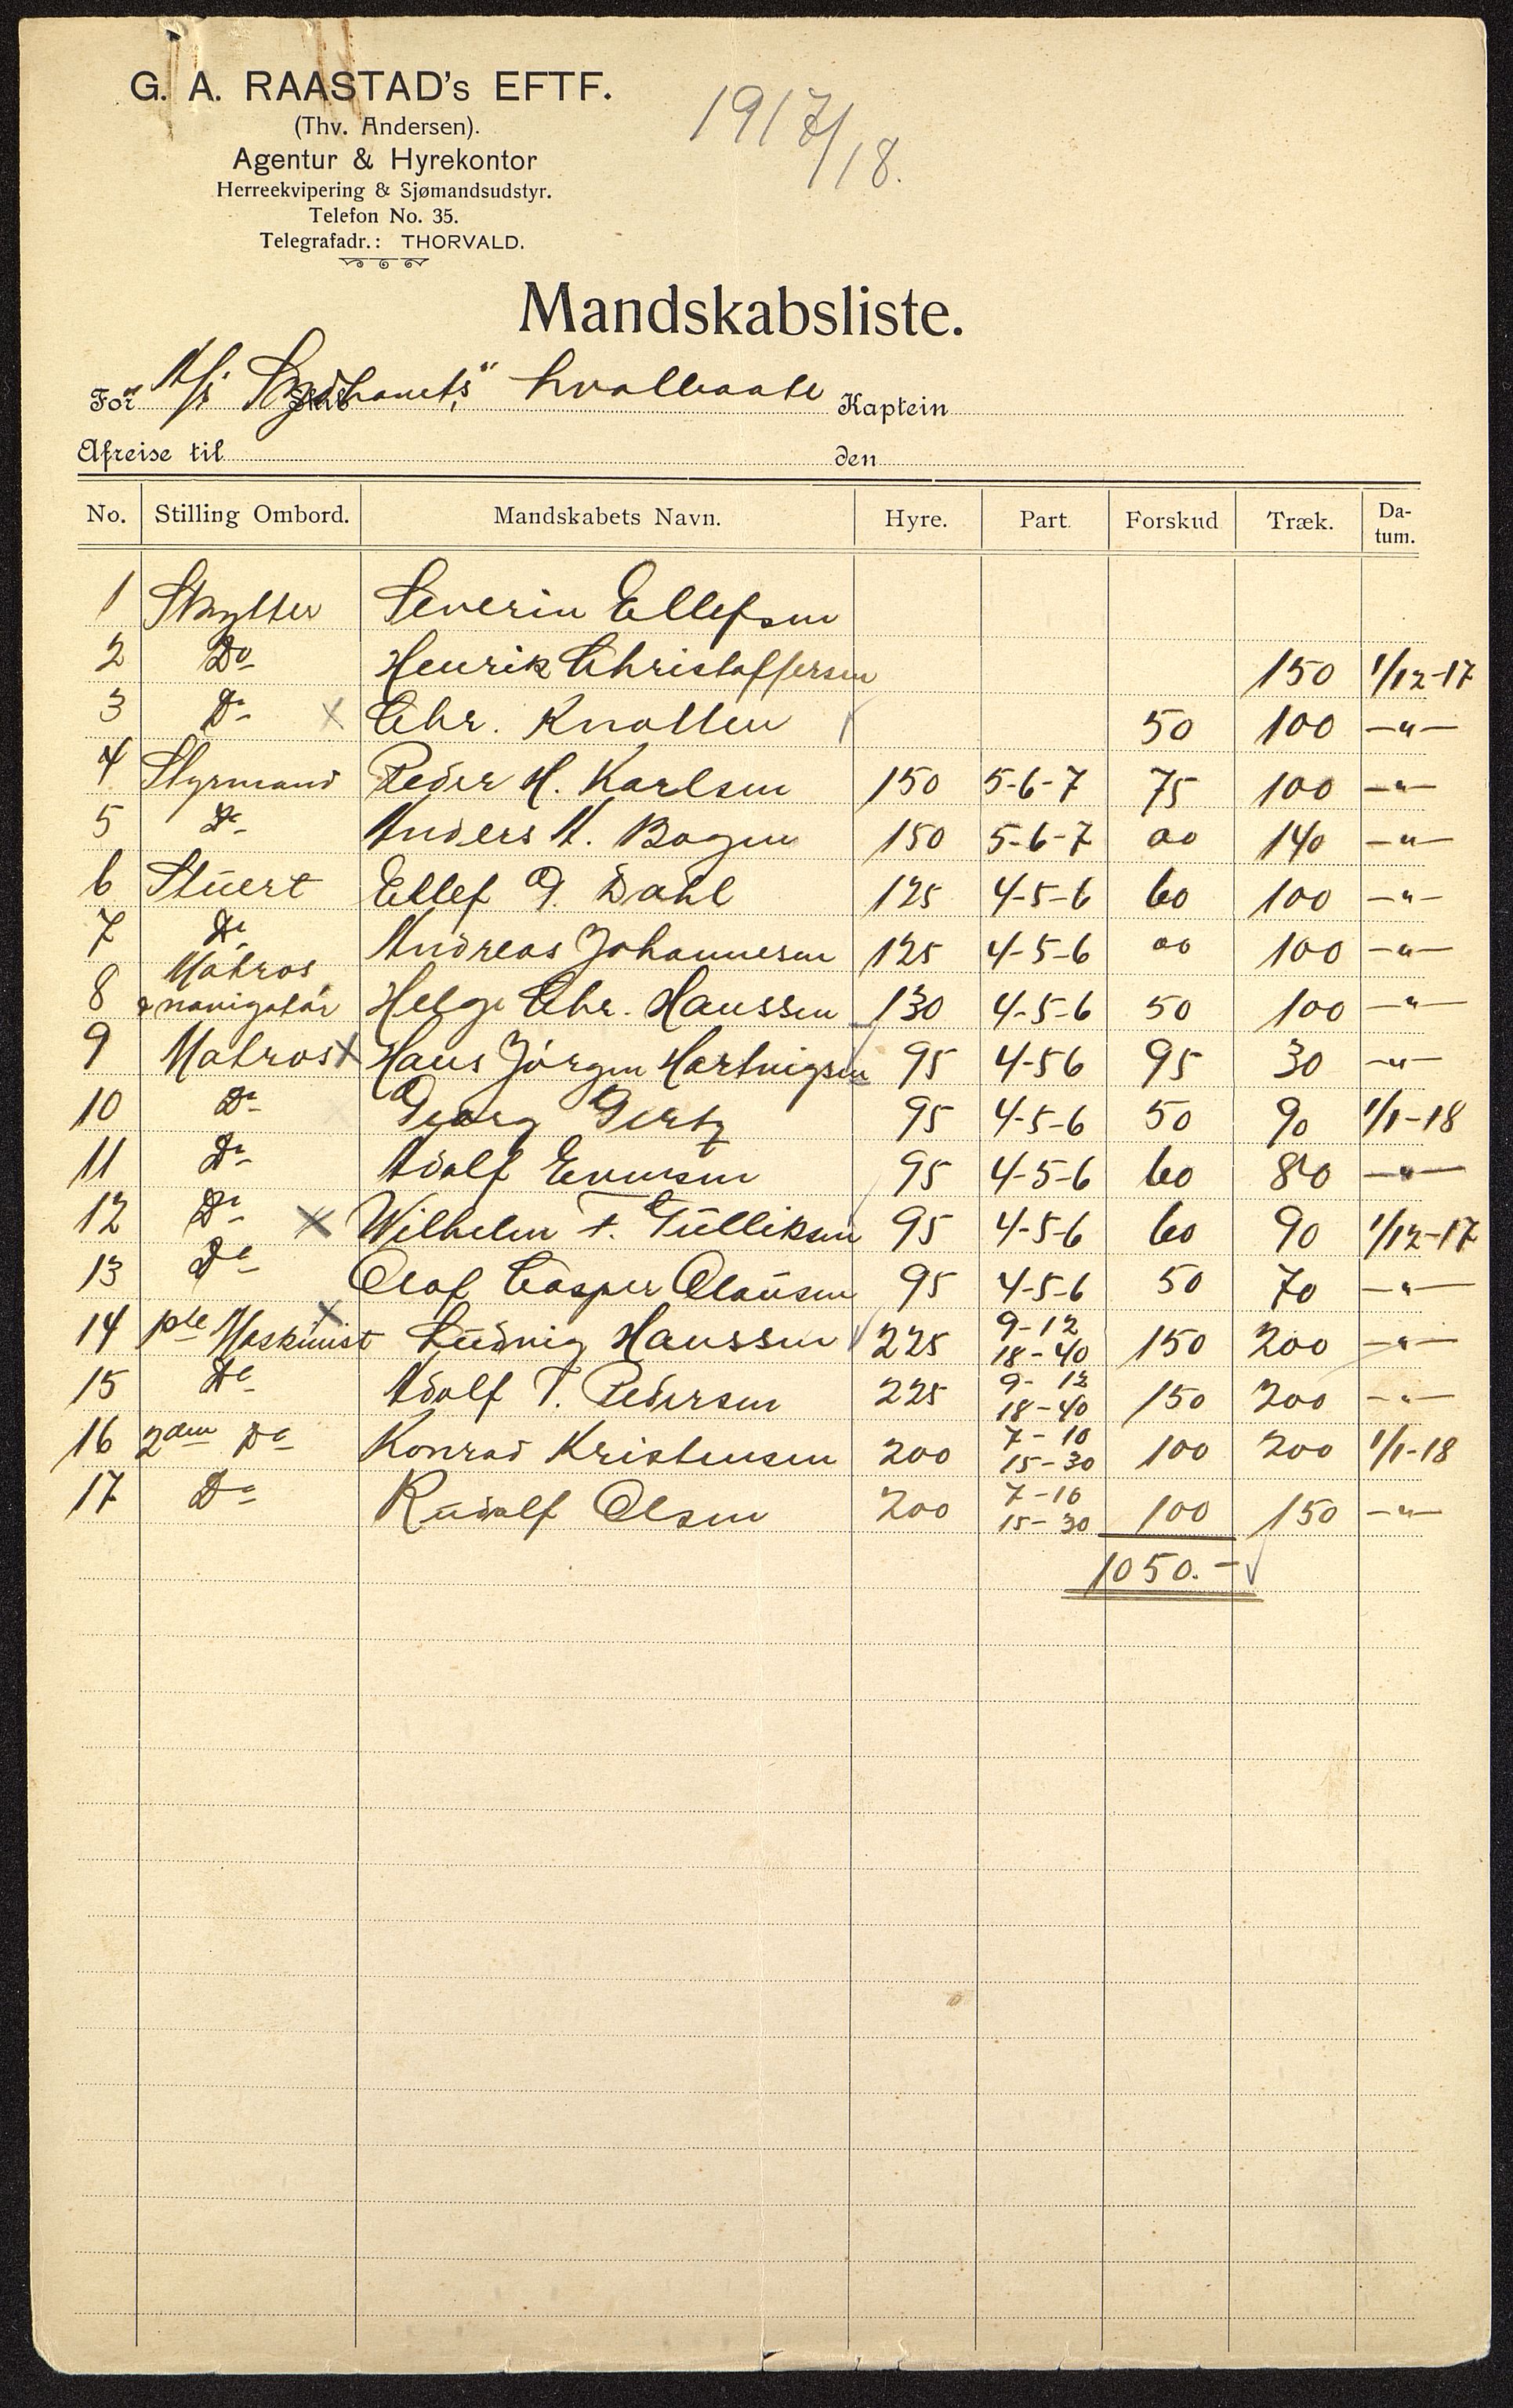 G. A. RAASTAD's EFTF.
(Thv. Andersen).
Agentur & Hyrekontor
Herreekvipering & Sjømandsudstyr.
Telefon No. 35.
Telegrafadr.: THORVALD.
1917/18.
Mandskabsliste.
For A/S "Sydhavets" hvalbaate Kaptein
Afreise til den
No. Stilling Ombord. Mandskabets Navn. Hyre. Part. Forskud Træk. Da-tum.
1 Skytter Severin Ellefsen
2 Do Henrik Christoffersen 150 1/12-17
3 Do x Chr. Knatten 50 100 -"-
4 Styrmand Peder H. Karlsen 150 5-6-7 75 100 -"-
5 Do Anders A. Bogen 150 5-6-7 00 140 -"-
6 Stuert Ellef G. Dahl 125 4-5-6 60 100 -"-
7 Do Andreas Johannesen 125 4-5-6 00 100 -"-
8 Matros & navigatør Helge Chr. Hanssen 130 4-5-6 50 100 -"-
9 Matros x Hans Jörgen Hartvigsen 95 4-56 95 30 -"-
10 Do Georg Gertz 95 4-5-6 50 90 1/1-18
11 Do Adolf Evensen 95 4-5-6 60 80 -"-
12 Do x Wilhelm F. Gulliksen 95 4-5-6 60 90 1/12-17
13 Do Olaf Casper Olausen 95 4-5-6 50 70 -"-
14 1ste Maskinist x Ludvig Hanssen √ 225 9-12 18-40 150 200 -"-
15 Do Adolf T. Pedersen 225 9-12 18-40 150 200 -"-
16 2den Do Konrad Kristensen 200 7-10 15-30 100 200 1/1-18
17 Do Rudolf Olsen 200 7-10 15-30 100 150 -"-
1050.- √